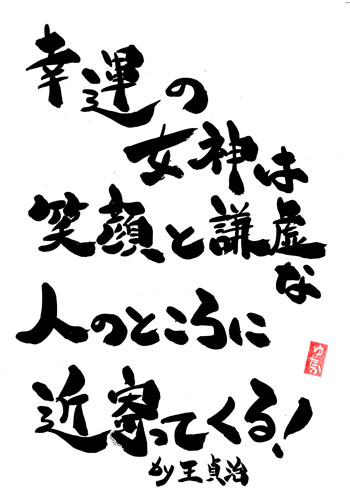 幸運の
女神は
笑顔と謙虚
な
人のところに
近寄ってくる!
by王貞治
ゆたか